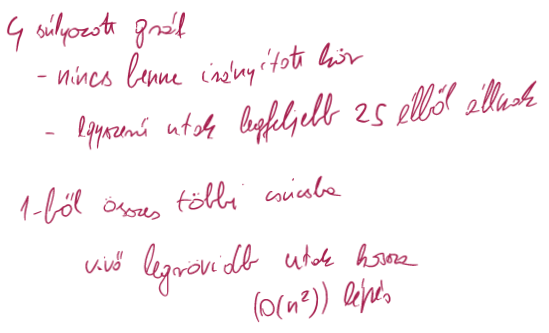 G súlyozott gráf
- nincs benne irányított kör
- egyszerű utak legfeljebb 25 élből állnak
1-ből összes többi csúcsba
vivő legrövidebb utak hossza
(O(n²)) lépés